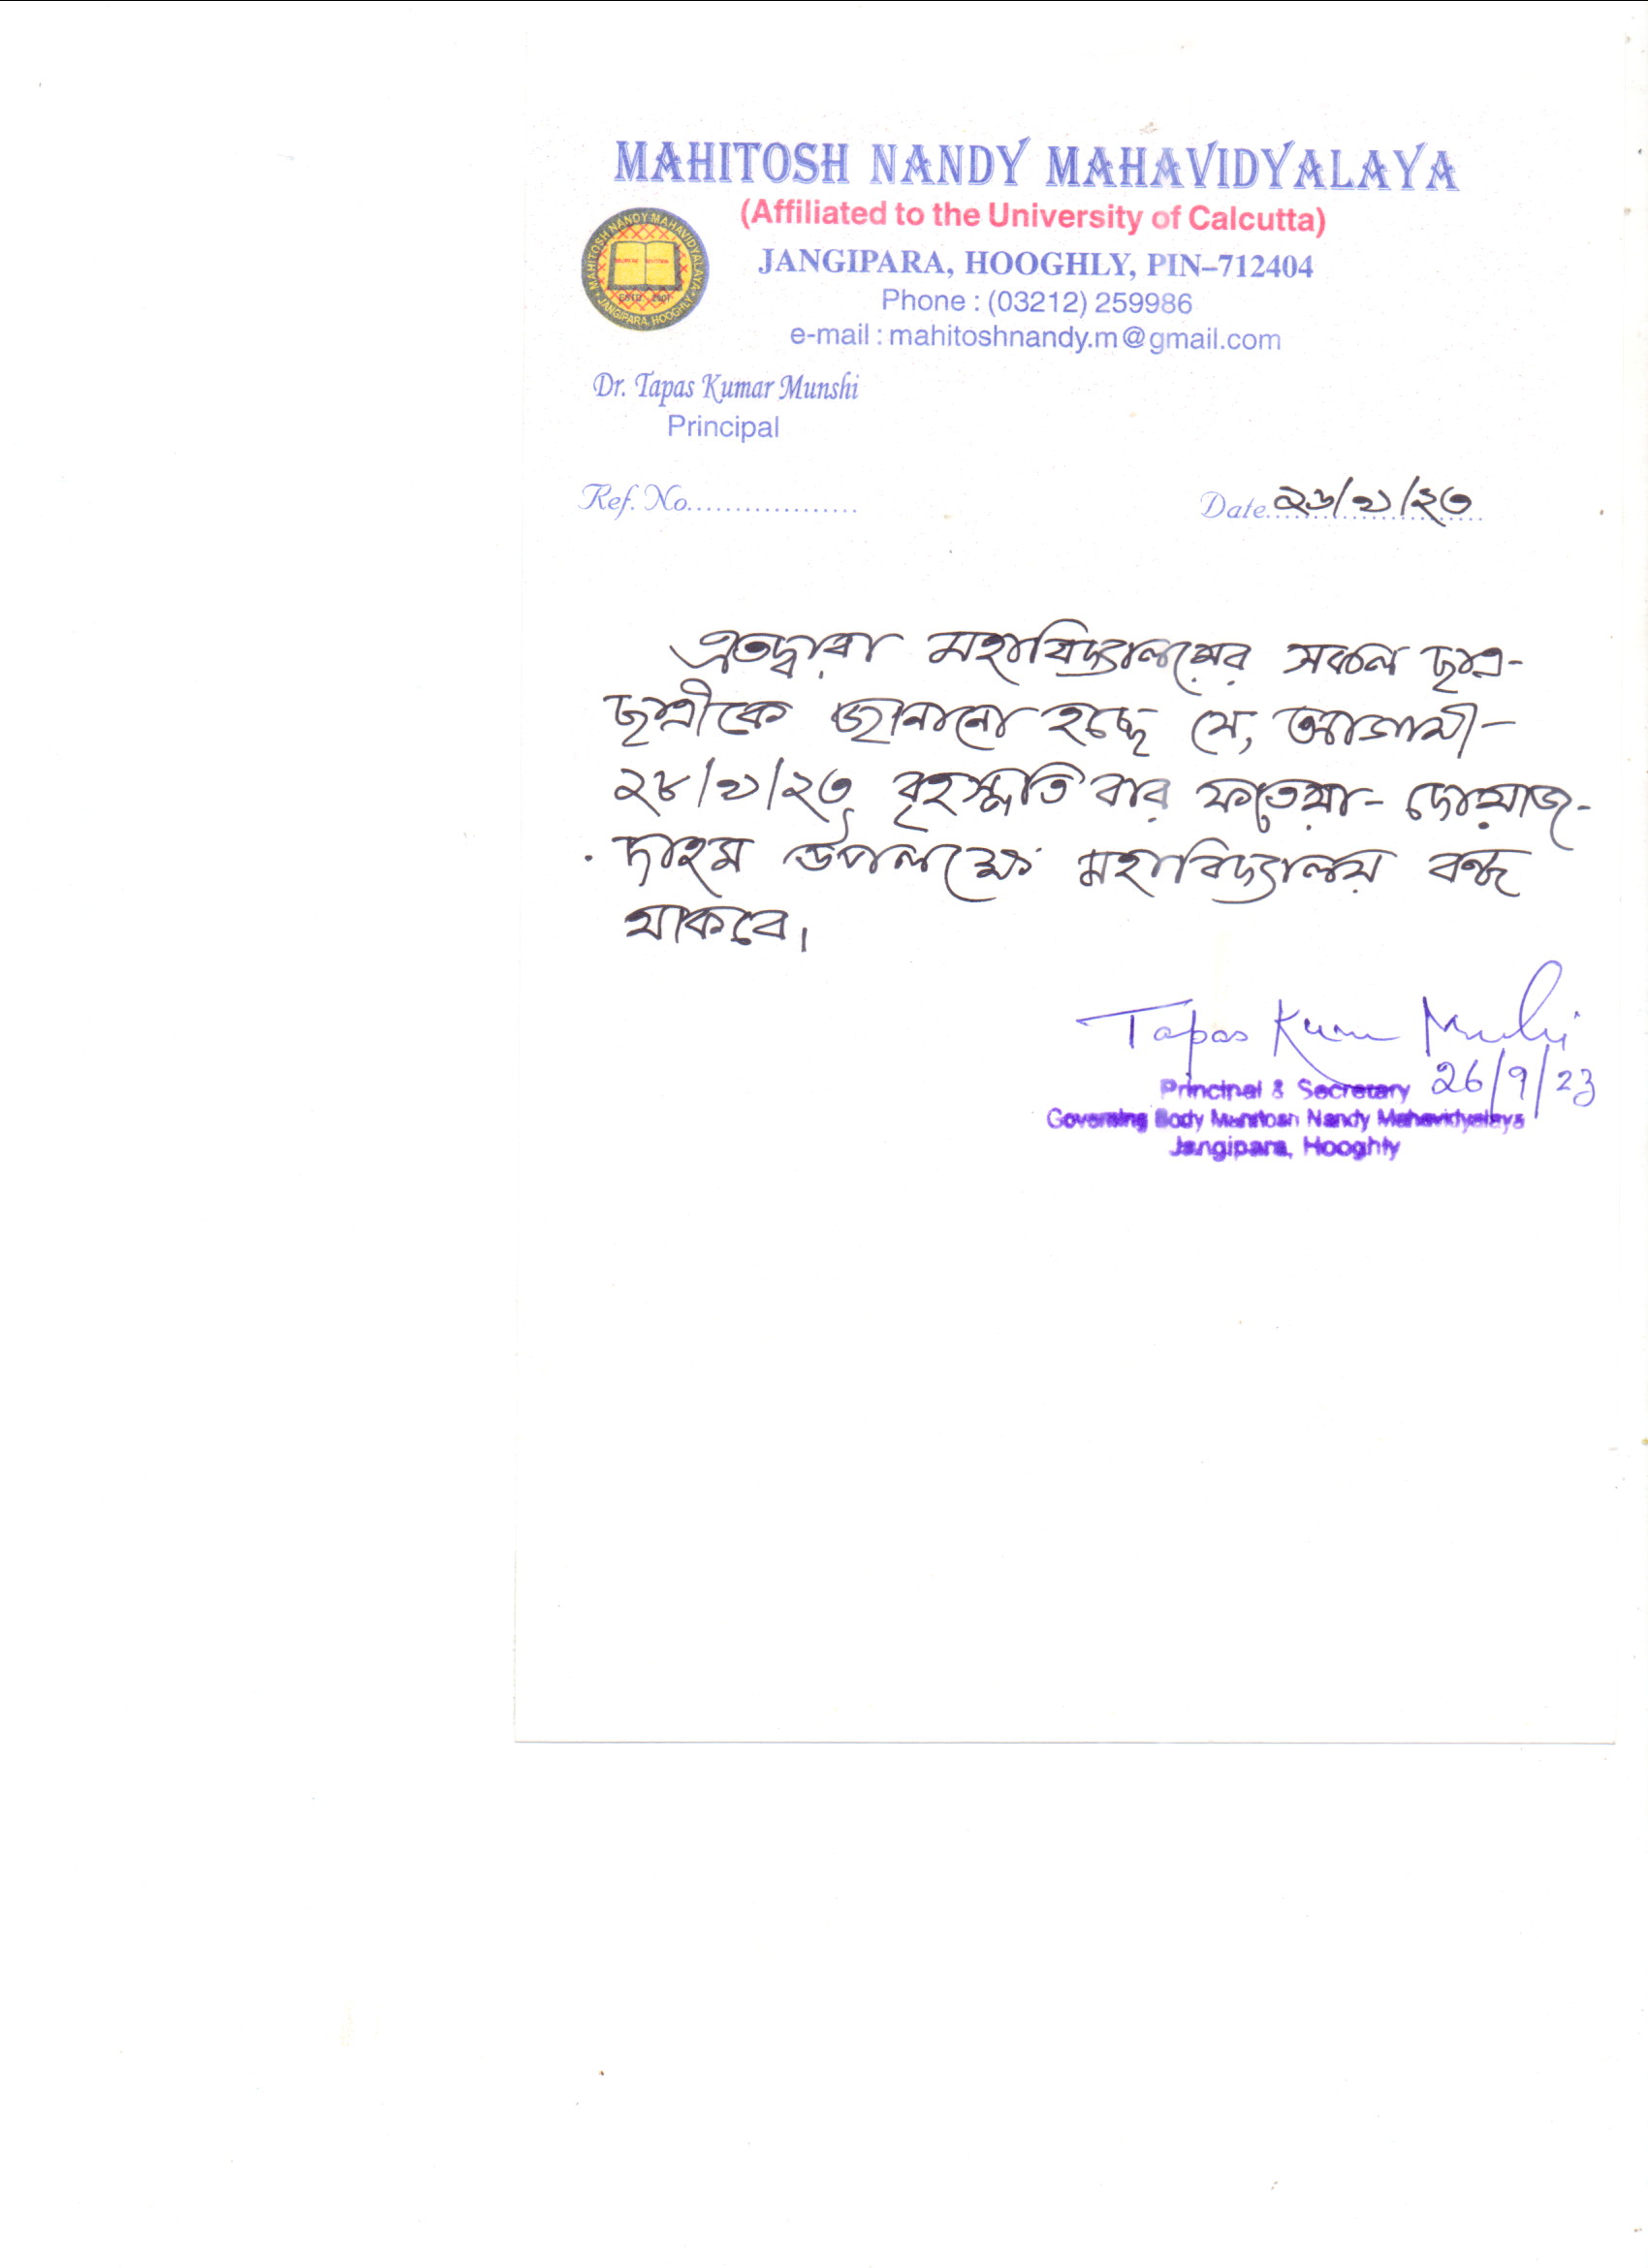 MAHITOSH NANDY MAHAVIDYALAYA
(Affiliated to the University of Calcutta)
JANGIPARA, HOOGHLY, PIN–712404
Phone : (03212) 259986
e-mail : mahitoshnandy.m@gmail.com
MAHITOSH NANDY MAHAVIDYALAYA
ESTD 2007
JANGIPARA, HOOGHLY
Dr. Tapas Kumar Munshi
Principal
Ref. No.................. Date ২৬/৯/২৩
এতদ্বারা মহাবিদ্যালয়ের সকল ছাত্র-
ছাত্রীকে জানানো হচ্ছে যে, আগামী-
২৮/৯/২৩ বৃহস্পতি বার ফতেয়া- দোয়াজ-
দাহম উপলক্ষে মহাবিদ্যালয় বন্ধ
থাকবে।
Tapas Kumar Munshi
26/9/23
Principal & Secretary
Governing Body Mahitosh Nandy Mahavidyalaya
Jangipara, Hooghly